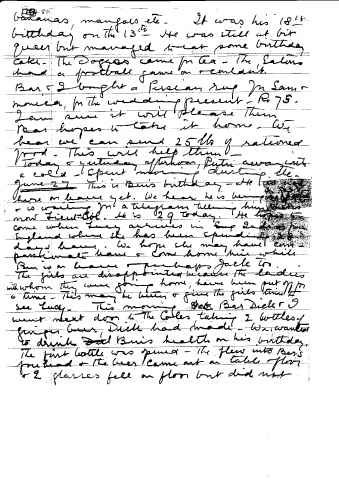 bananas, mangoes etc. It was his 18th
birthday on the 13th. He was still a bit
queer but managed to eat some birthday
cake. The Doggs came for tea - The Eatons
had a football game on & couldn't.
Bar & I bought a Persian rug for Sam &
Monica, for the wedding present - Rs 75.
I am sure it will please them
Bar hopes to take it home. We
hear we can send 25 lbs of rationed
food. This will help things
Today & yesterday afternoon, Putri away with
a cold - Spent morning dusting etc.
June 27 This is Bin's birthday - He
here on leave yet. We hear he is being
- is waiting for a telegram telling him
now Lieut-Col. He is 29 today. He hopes to
come when Lucy arrives in
England where she has been spending
days leave. We hope she may have com-
passionate leave & come home here while
Bin is on leave & perhaps Jack too.
The girls are disappointed because the ladies
with whom they were going home, have been put off for
a time - This may be better & give the girls time to
see Lucy. This morning Bar Dick & I
went next door to the Coles taking 2 bottles of
ginger beer, Dick had made. We wanted
to drink Bin's health on his birthday.
The first bottle was opened - The flew into Bar's
forehead & the beer came out on table & floor
& 2 glasses fell on floor but did not